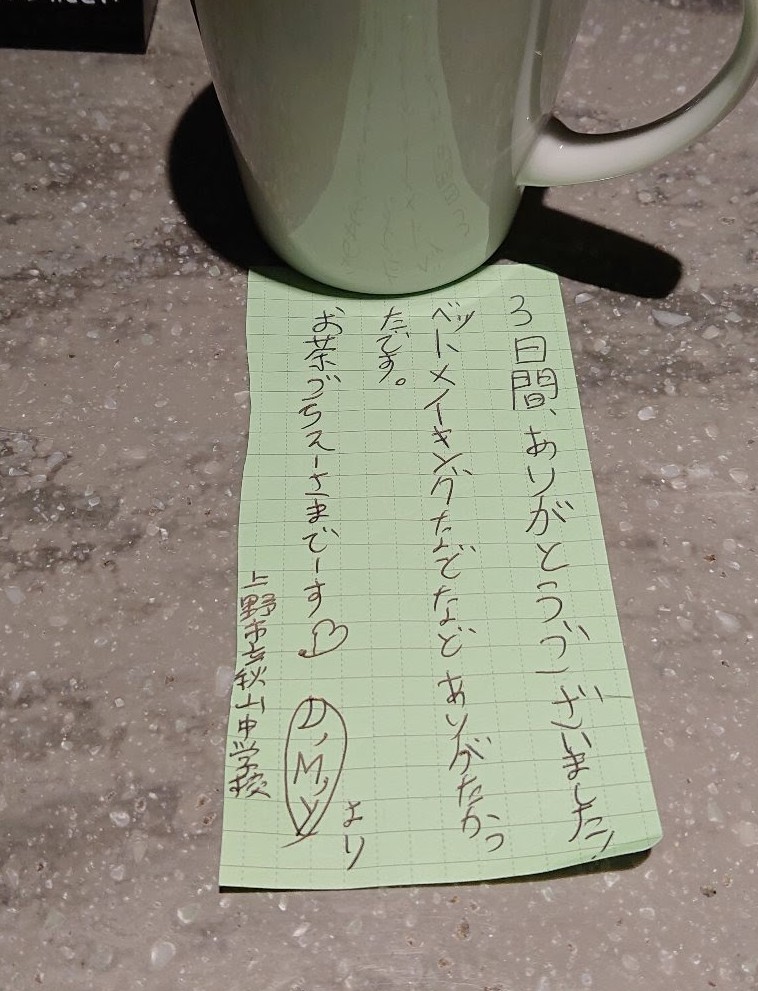 3日間、ありがとうございました!
ベットメイキングなどなど ありがたかっ
たです。
お茶ごちそーさまでーす♡
D,M,Y
より
上野市立秋山中学校